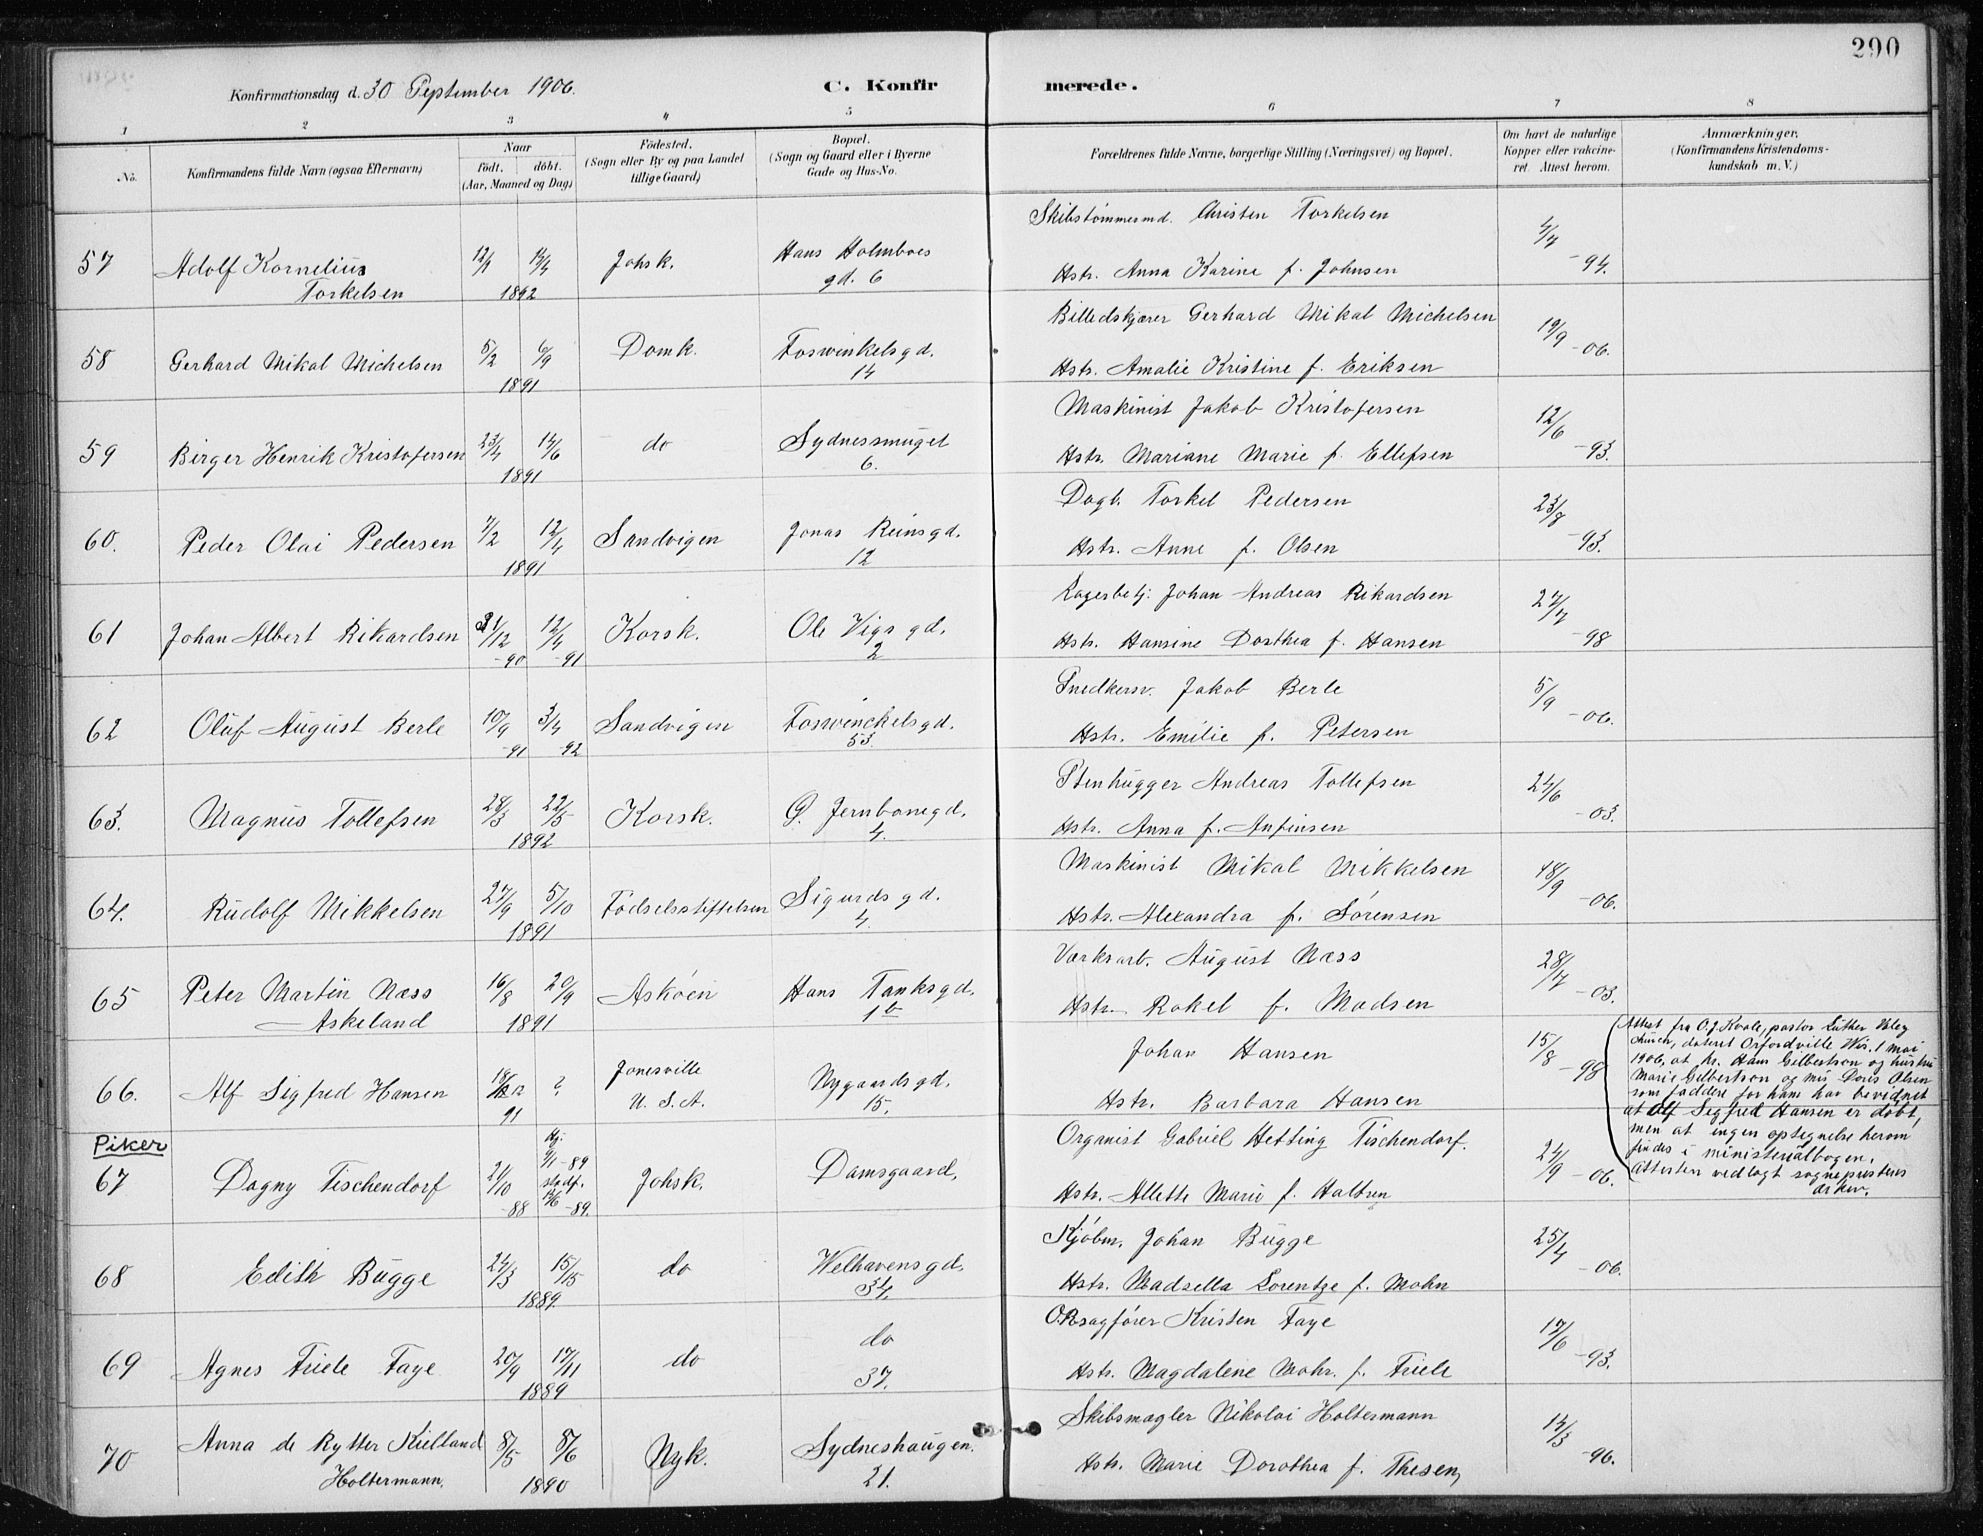 290
Konfirmationsdag d. 30 September 1906.
C. Konfirmerede.
1 2 3 4 5 6 7 8
No.
Konfirmandens fulde Navn (ogsaa Efternavn)
Naar
født. døbt.
(Aar, Maaned og Dag)
Fødested.
(Sogn eller By og paa Landet
tillige Gaard)
Bopæl.
(Sogn og Gaard eller i Byerne
Gade og Hus-No.
Forældrenes fulde Navne, borgerlige Stilling (Næringsvei) og Bopæl.
Om havt de naturlige
Kopper eller vakcine-
ret. Attest herom.
Anmærkninger.
(Konfirmandens Kristendoms-
kundskab m. V.)
57 Adolf Kornelius Johsk. Hans Holmboes Skibstømmermd. Christen Torkelsen
Torkelsen 1892 gd. 6 Hstr. Anna Karine f. Johnsen -94.
58 Gerhard Mikal Michelsen 5/2 6/9 Domk. Foswinkelsgd. Billedskjærer Gerhard Mikal Michelsen 19/9
1891 14 Hstr. Amalie Kristine f. Eriksen -06.
59 Birger Henrik Kristofersen 23/4 14/6 do Sydnessmuget Maskinist Jakob Kristofersen 12/6
1891 6. Hstr. Mariane Marie f. Ellefsen -93.
60. Peder Olai Pedersen 7/2 12/4 Sandvigen Jonas Reinsgd. Dagb. Torkel Pedersen 23/8
1891 12 Hstr. Anne f. Olsen -93.
61 Johan Albert Rikardsen 31/12 12/4 Korsk. Ole Vigs gd. Lagerbetj. Johan Andreas Rikardsen 27/7
-90 -91 2 Hstr. Hansine Dorthea f. Hansen -98
62 Oluf August Berle 10/9 3/4 Sandvigen Foswinckelsgd. Snedkersv. Jakob Berle 5/9
-91 -92 53. Hstr. Emilie f. Petersen -06.
63. Magnus Tollefsen 28/3 22/5 Korsk. Ø. Jernbanegd. Stenhugger Andreas Tollefsen 24/6
1892 4. Hstr. Anna f. Anfinsen -03.
64. Rudolf Mikkelsen 27/9 5/10 Fødselsstiftelsen Sigurdsgd. Maskinist Mikal Mikkelsen 18/9
1891 4. Hstr. Alexandra f. Sørensen -06.
65 Peter Martin Næss 16/8 20/9 Askøen Hans Tanksgd. Værksarb. August Næss 28/7
Askeland 1891 1b Hstr. Rakel f. Madsen -03.
66. Alf Sigfred Hansen 18/12 ? Jonesville Nygaardsgd. Johan Hansen 15/8
91 U. S. A. 15. Hstr. Barbara Hansen -98
Attest fra O. J. Kvale, pastor Luther Valey
church, dateret Orfordville Wis. 1 mai
1906, at hr. Hans Gilbertson og hustru
Marie Gilbertson og mis Doris Olsen
som faddere for ham har bevidnet
at Alf Sigfred Hansen er døbt,
men at ingen optegnelse herom
findes i ministerialbogen.
Attesten vedlagt sogneprestens
arkiv.
Piker
67 Dagny Tischendorf 24/10 -88 Hj. -89 stadf. -89. Johsk. Damsgaard. Organist Gabriel Hetting Tischendorf. 24/9
Hstr. Allette Marie f. Haltren -06.
68 Edith Bugge 24/3 15/5 do Welhavensgd. Kjøbm. Johan Bugge 25/4
1889. 34. Hstr. Madsella Lorentze f. Mohn -06.
69 Agnes Friele Faye 20/9 17/11 do do O.R.sagfører Kristen Faye 17/6
1889 37. Hstr. Magdalene Mohr. f. Friele -93.
70 Anna de Rytter Kielland 8/5 8/6 Nyk. Sydneshaugen. Skibsmægler Nikolai Holtermann 14/3
Holtermann. 1890 21. Hstr. Marie Dorothea f. Thesen, -96.